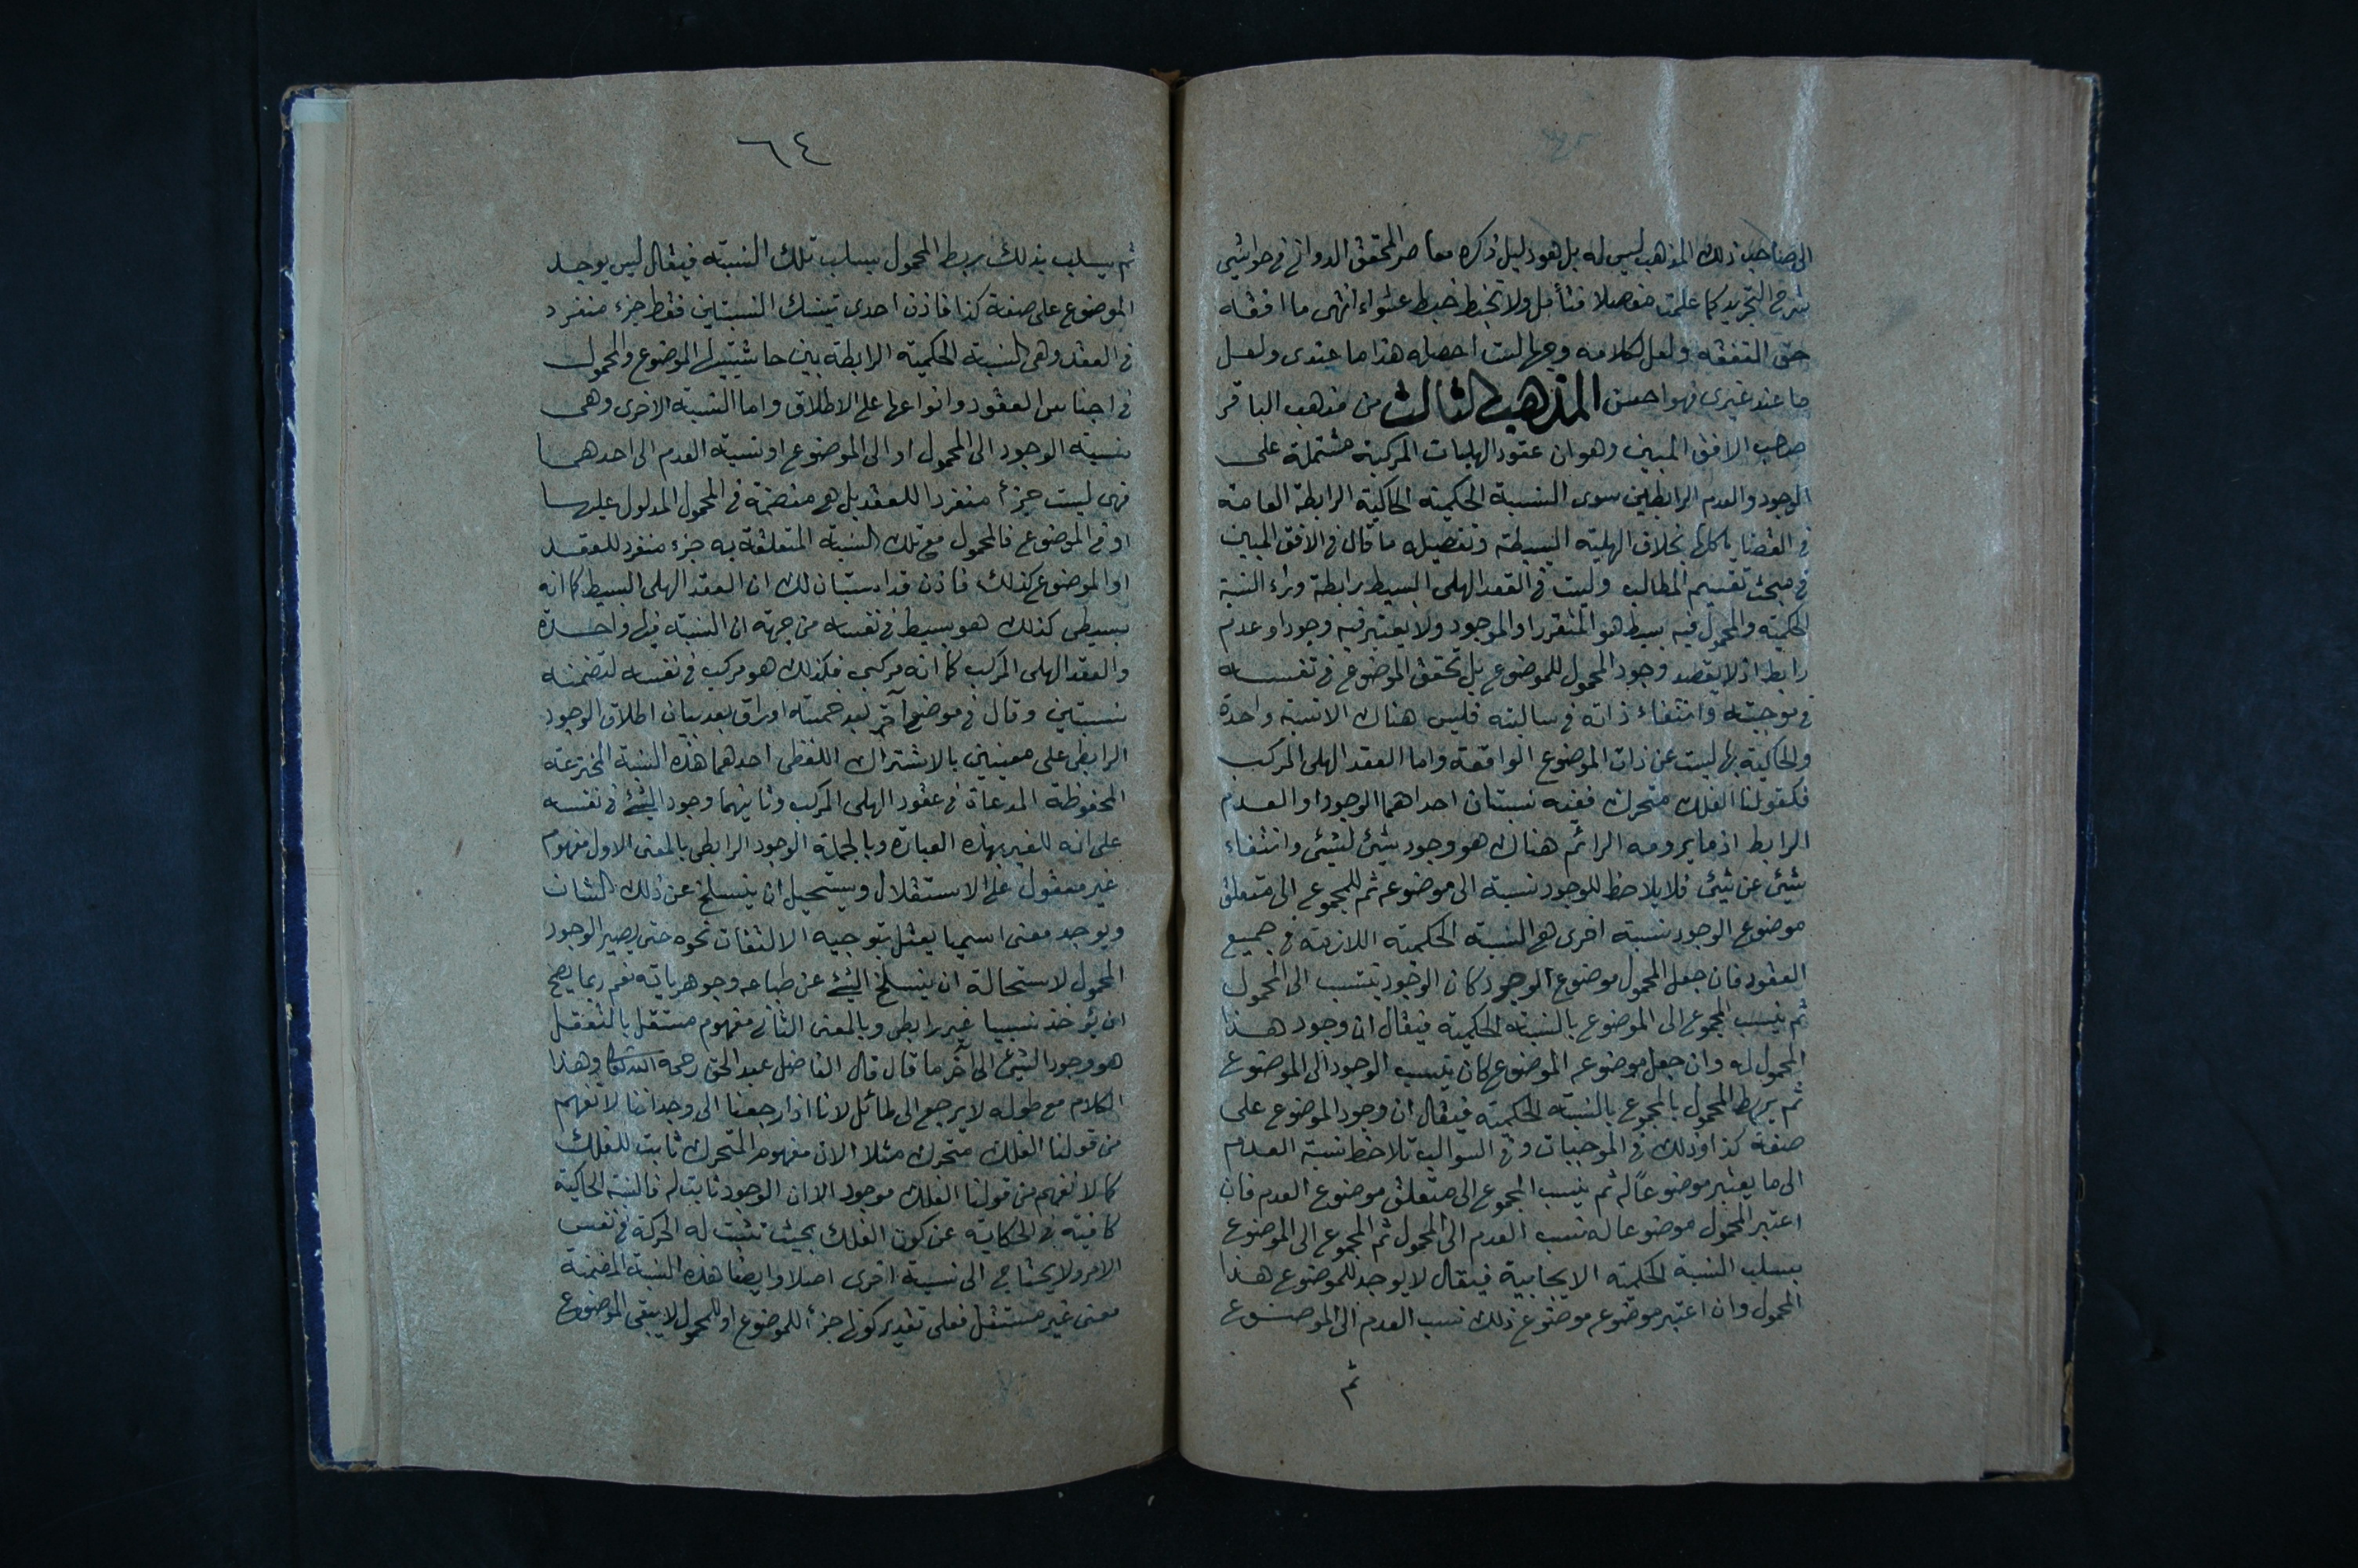 الى صاحب ذلك المذهب ليس له بل هو دليل ذكره معاصر المحقق الدوانى فى حواشى
شرح التجريد كما علمت مفصلا فتأمل ولا تخبط خبط عشواء انتهى ما افقه
حق التفقه ولعل لكلامه وجها لست احصله هذا ما عندى ولعل
ما عند غيرى فهو احسن المذهب الثالث من مذهب الباقر
صاحب الافق المبين وهو ان عقود الهليات المركبة مشتملة على
الوجود والعدم الرابطين سوى النسبة الحكمية الحاكية الرابطة العامة
فى القضايا كلها بخلاف الهلية البسيطة وتفصيله ما قال فى الافق المبين
فى مبحث تقسيم المطالب وليست فى العقد الهلى البسيط رابطة وراء النسبة
الحكمية والمحمول فيه بسيط هو المتقرر او الموجود ولا يعتبر فيه وجود او عدم
رابط اذ لا يقصد وجود المحمول للموضوع بل تحقق الموضوع فى نفسه
فى موجبته وانتفاء ذاته فى سالبته فليس هناك الا نسبة واحدة
والحاكية بها ليست عن ذات الموضوع الواقعة واما العقد الهلى المركب
فكقولنا الفلك متحرك ففيه نسبتان احداهما الوجود او العدم
الرابط اذ ما يرومه الرائم هناك هو وجود شيئ لشيئ وانتفاء
شيئ عن شيئ فلا يلاحظ للوجود نسبة الى موضوعه ثم للمجموع الى متعلق
موضوع الوجود نسبة اخرى هى النسبة الحكمية اللازمة فى جميع
العقود فان جعل المحمول موضوع الوجود كان الوجود ينتسب الى المحمول
ثم ينسب المجموع الى الموضوع بالنسبة الحكمية فيقال ان وجود هذا
المحمول له وان جعل موضوعه الموضوع كان ينسب الوجود الى الموضوع
ثم يربط المحمول بالمجموع بالنسبة الحكمية فيقال ان وجود الموضوع على
صفة كذا وذلك فى الموجبات وفى السوالب تلاحظ نسبة العدم
الى ما يعتبر موضوعاً له ثم ينسب المجموع الى متعلق موضوع العدم فان
اعتبر المحمول موضوعا له نسب العدم الى المحمول ثم المجموع الى الموضوع
بسلب النسبة الحكمية الايجابية فيقال لا يوجد للموضوع هذا
المحمول وان اعتبر موضوعه موضوع ذلك نسب العدم الى الموضوع
ثم
٦٤
ثم يسلب بذلك ربط المحمول بسلب تلك النسبة فيقال ليس يوجد
الموضوع على صفة كذا فاذن احدى تينك النسبتين فقط جزء منفرد
فى العقد وهى النسبة الحكمية الرابطة بين حاشيتيها الموضوع والمحمول
فى اجناس العقود وانواعها على الاطلاق واما النسبة الاخرى وهى
نسبة الوجود الى المحمول او الى الموضوع او نسبة العدم الى احدهما
فهى ليست جزأ منفردا للعقد بل هى متضمنة فى المحمول المدلول عليها
او فى الموضوع فالمحمول مع تلك النسبة المتعلقة به جزء منفرد للعقد
او الموضوع كذلك فاذن قد استبان لك ان العقد الهلى البسيط كما انه
بسيطى كذلك هو بسيط فى نفسه من جهة ان النسبة فيها واحدة
والعقد الهلى المركب كما انه مركبى فكذلك هو مركب فى نفسه لتضمنه
نسبتين وقال فى موضع آخر بعد خمسة اوراق بعد بيان اطلاق الوجود
الرابطى على معنيين بالاشتراك اللفظى احدهما هذه النسبة المخترعة
المحفوظة المدعاة فى عقود الهلى المركب وثانيهما وجود الشئ فى نفسه
على انه للغير بهذه العبارة وبالجملة الوجود الرابطى بالمعنى الاول مفهوم
غير معقول على الاستقلال ويستحيل ان ينسلخ عن ذلك الشان
ويوجد معنى اسميا يعقل بتوجيه الالتفات نحوه حتى يصير الوجود
المحمول لاستحالة ان ينسلخ الشئ عن طباعه وجوهرياته نعم ربما يصح
ان يؤخذ نسبيا غير رابطى وبالمعنى الثانى مفهوم مستقل بالتعقل
هو وجود الشيئ الى آخر ما قال قال الفاضل عبد الحق رحمه الله تعالى وهذا
الكلام مع طوله لا يرجع الى طائل لانا اذا رجعنا الى وجداننا لا نفهم
من قولنا الفلك متحرك مثلا الا ان مفهوم المتحرك ثابت للفلك
كما لا نفهم من قولنا الفلك موجود الا ان الوجود ثابت له فالنسبة الحاكية
كافية فى الحكاية عن كون الفلك بحيث تثبت له الحركة فى نفس
الامر ولا يحتاج الى نسبة اخرى اصلا وايضا هذه النسبة المضمنة
معنى غير مستقل فعلى تقدير كونها جزأ للموضوع او للمحمول لا يبقى الموضوع